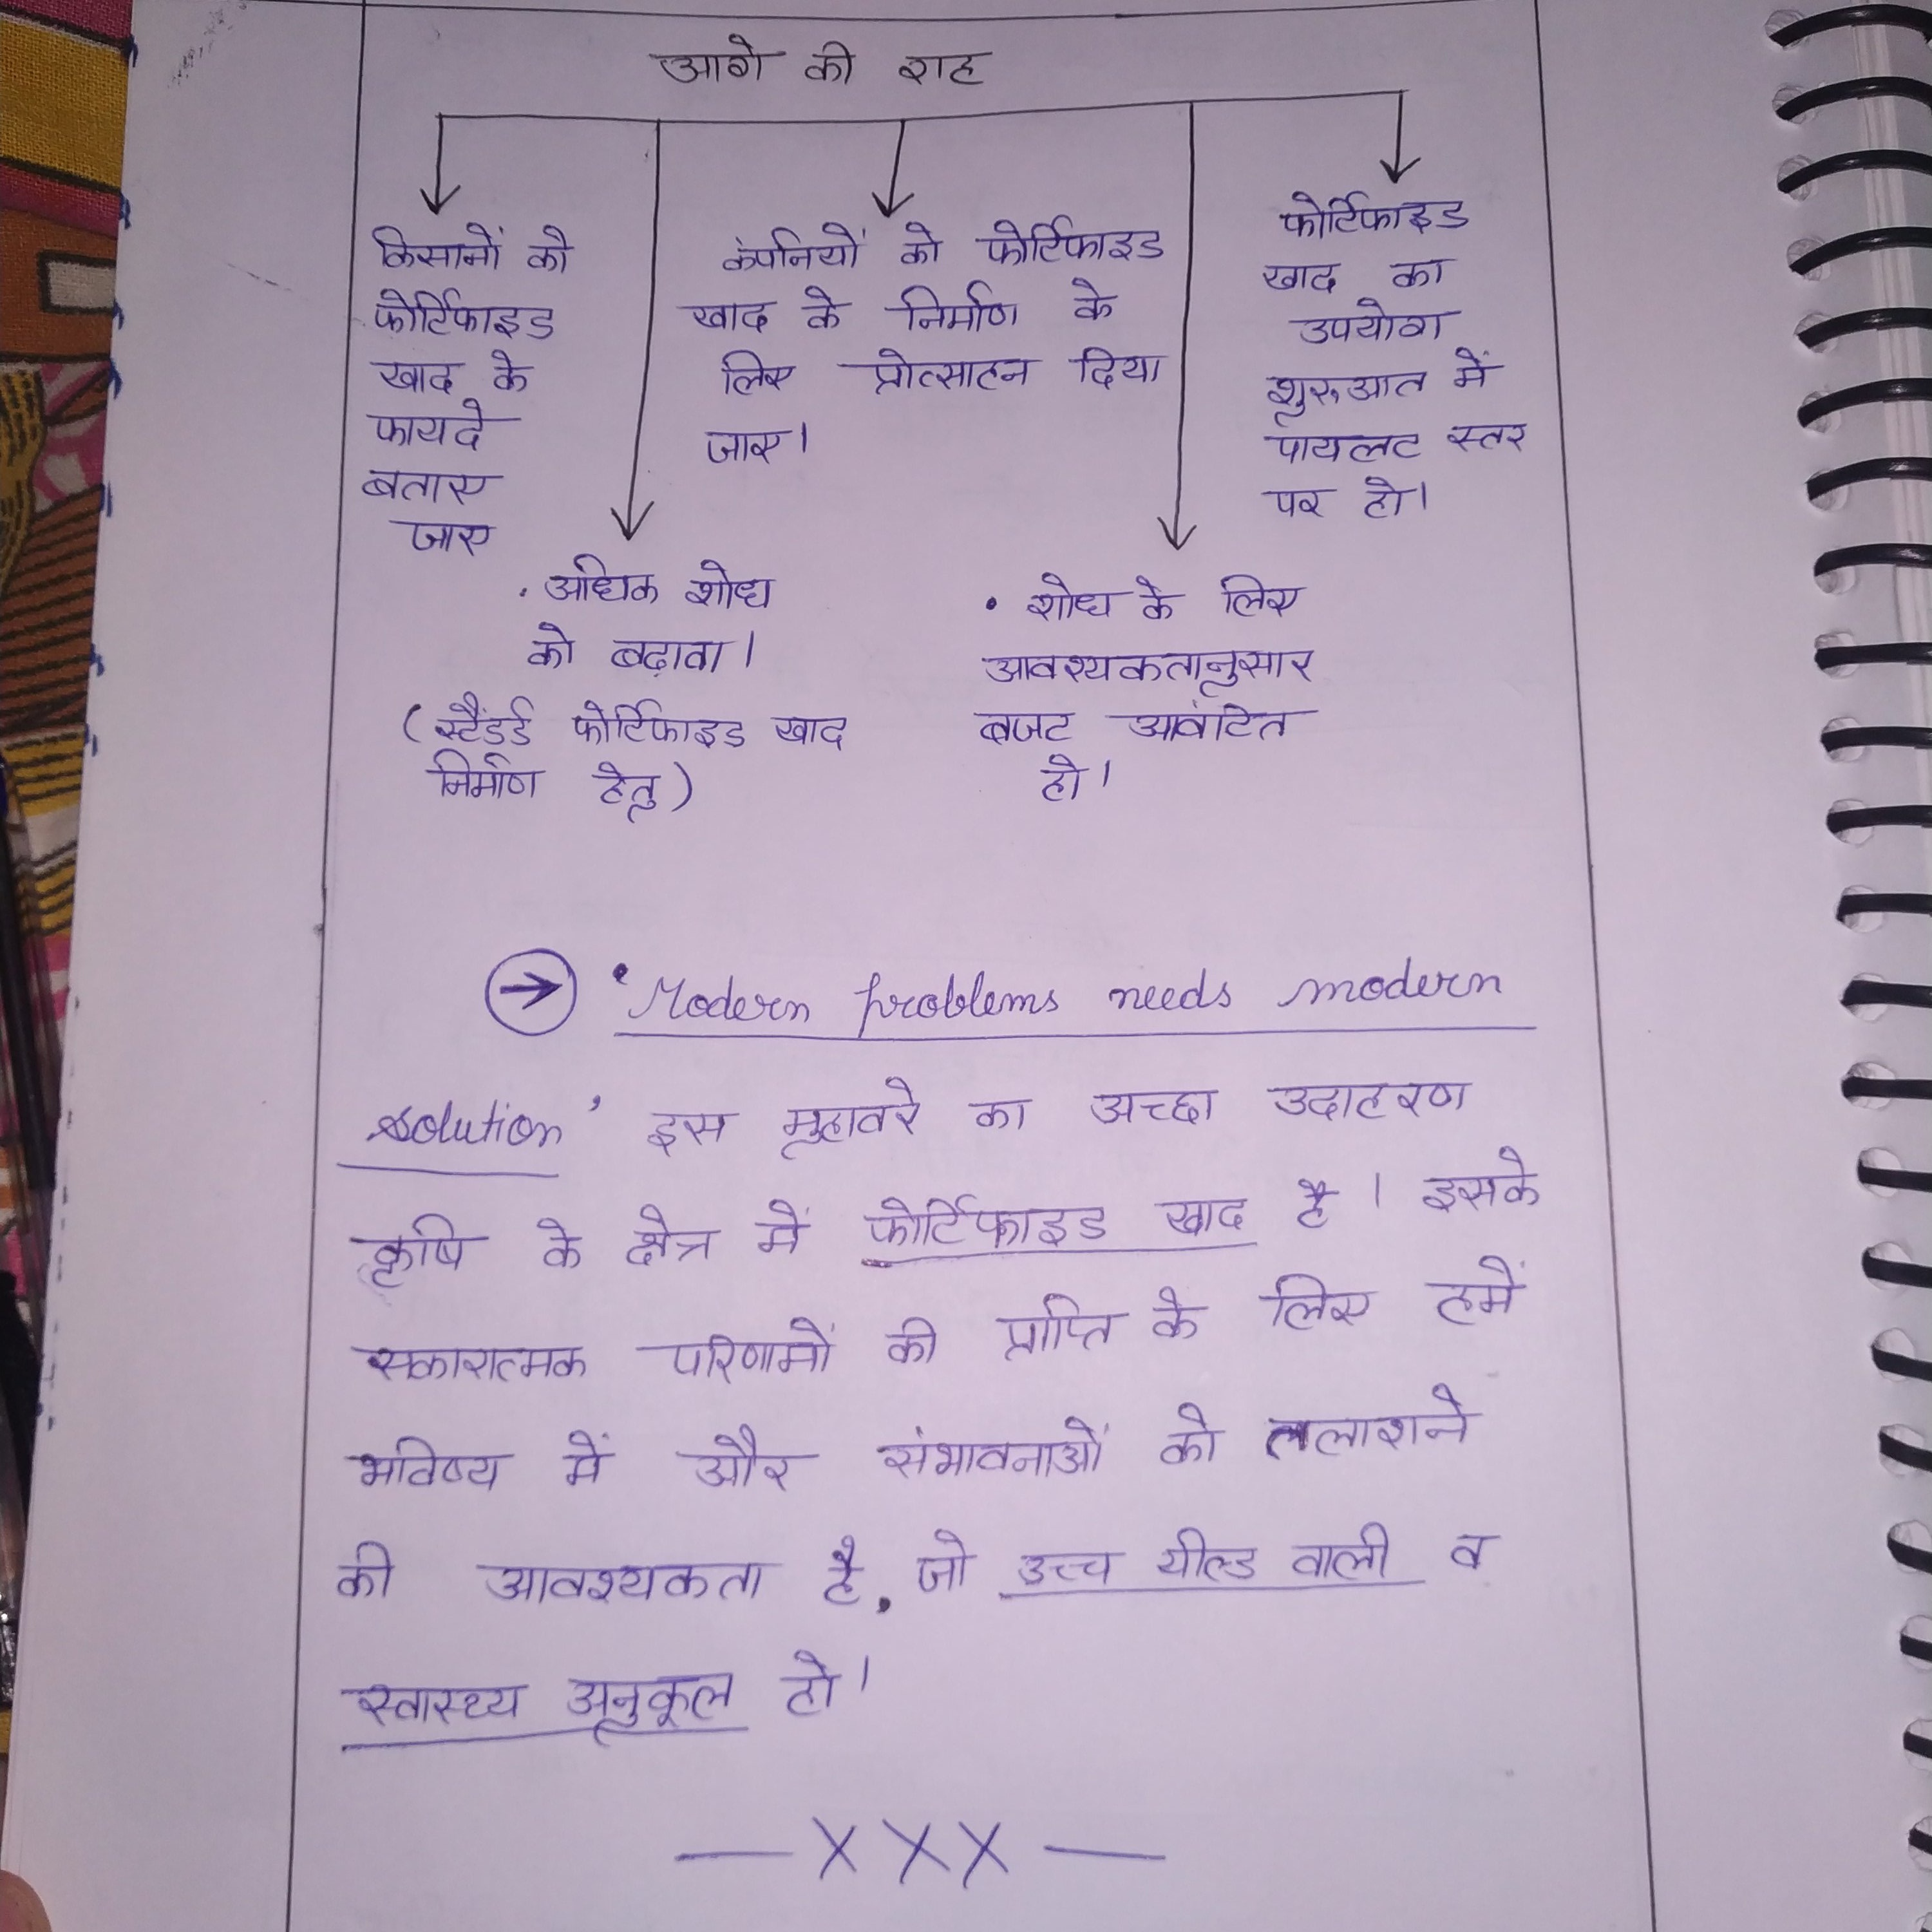 आगे की राह
किसानों को
फोर्टिफाइड
खाद के
फायदे
बताए
जाए
कंपनियों को फोर्टिफाइड
खाद के निर्माण के
लिए प्रोत्साहन दिया
जाए।
फोर्टिफाइड
खाद का
उपयोग
शुरुआत में
पायलट स्तर
पर हो।
. अधिक शोध
को बढ़ावा।
(स्टैंडर्ड फोर्टिफाइड खाद
निर्माण हेतु)
• शोध के लिए
आवश्यकतानुसार
बजट आवंटित
हो।
→ 'Modern problems needs modern
solution' इस मुहावरे का अच्छा उदाहरण
कृषि के क्षेत्र में फोर्टिफाइड खाद है। इसके
सकारात्मक परिणामों की प्राप्ति के लिए हमें
भविष्य में और संभावनाओं को तलाशने
की आवश्यकता है, जो उच्च यील्ड वाली व
स्वास्थ्य अनुकूल हो।
— X X X —